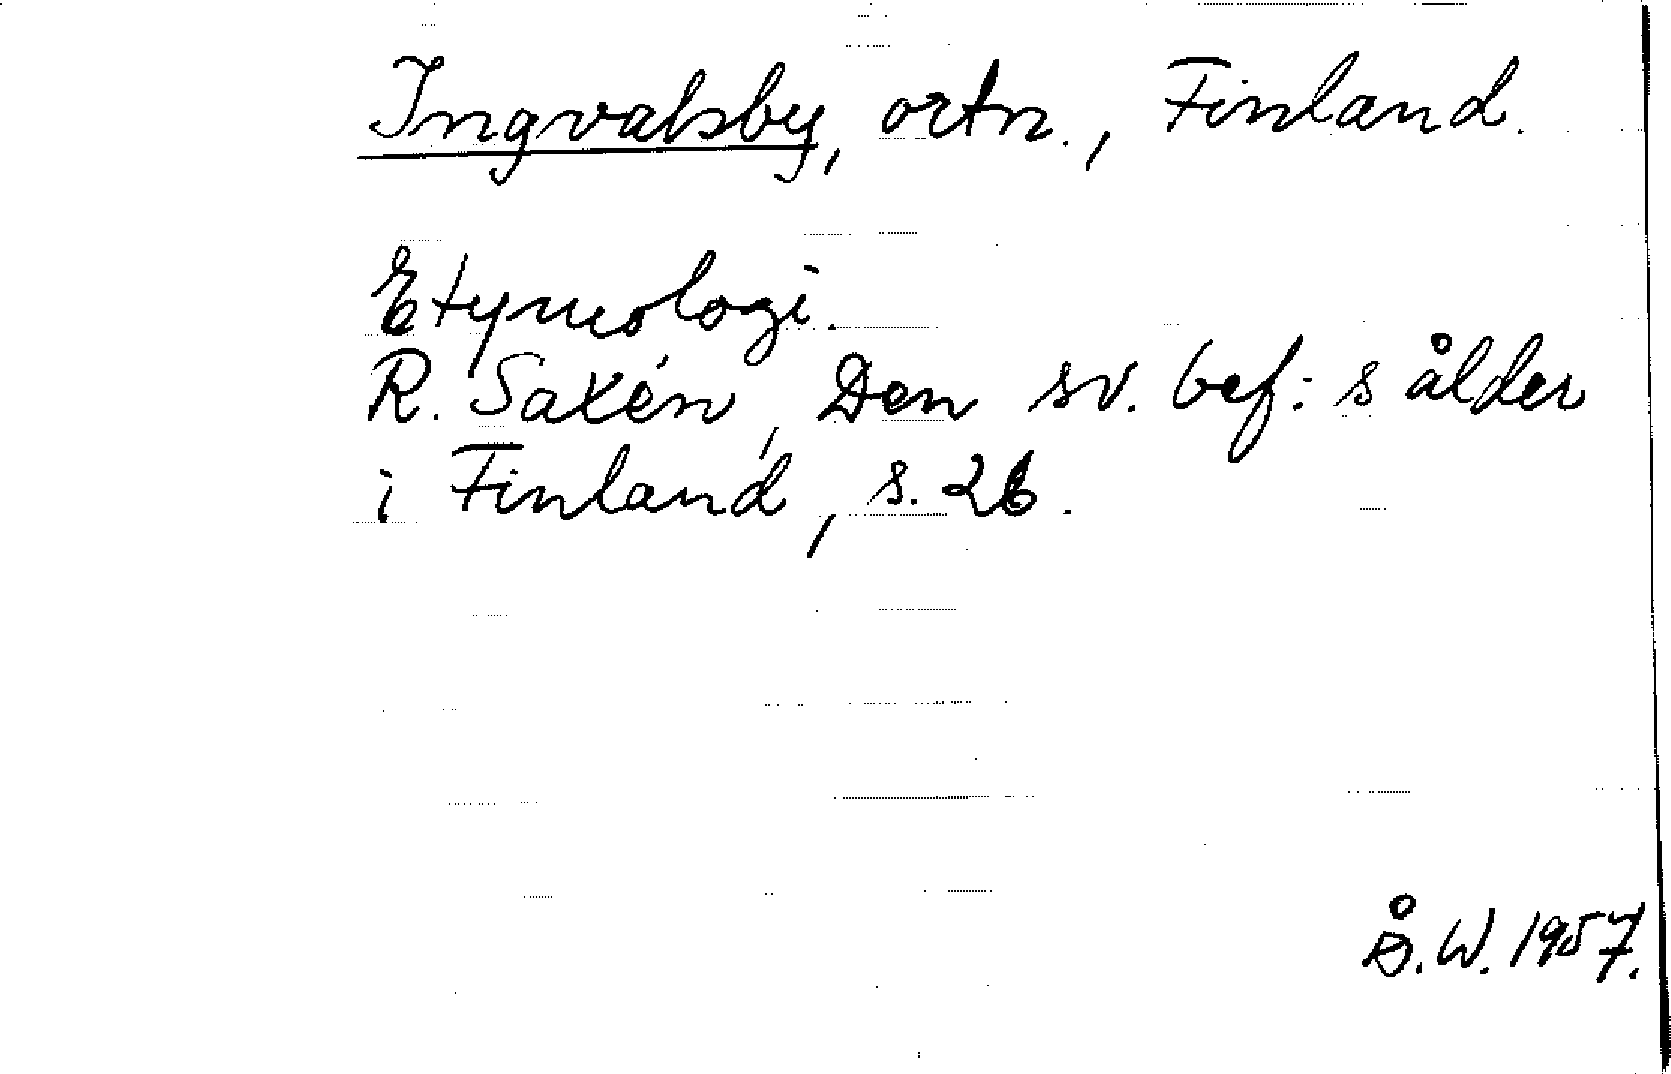 Ingvalsby, ortn., Finland.
Etymologi.
R. Saxén, Den sv. bef:s ålder
i Finland, s. 26.
Å.W. 1957.